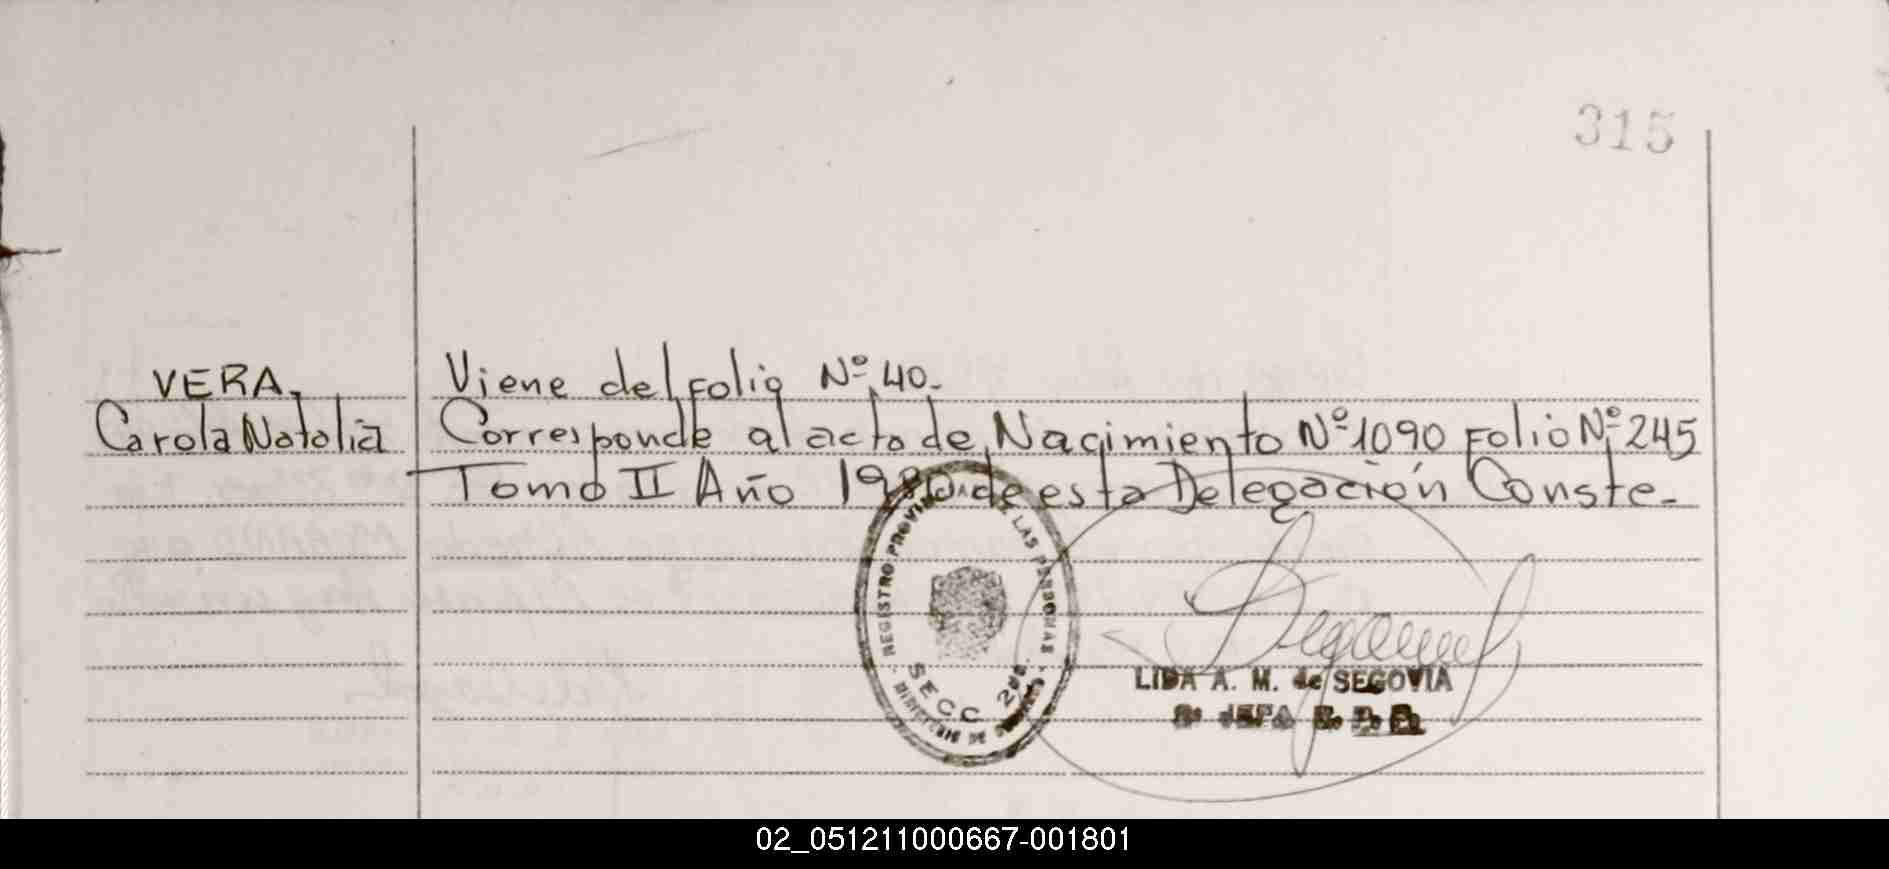 315
VERA
Carola Natalia
Viene del Folio Nº 40.-
Corresponde al acta de Nacimiento Nº 1090 Folio Nº 245
Tomo II Año 1980 de esta Delegación Conste.-
REGISTRO PROVINCIAL DE LAS PERSONAS
SECC
MINISTERIO DE
LIDA A. M. de SEGOVIA
JEFA
02_051211000667-001801